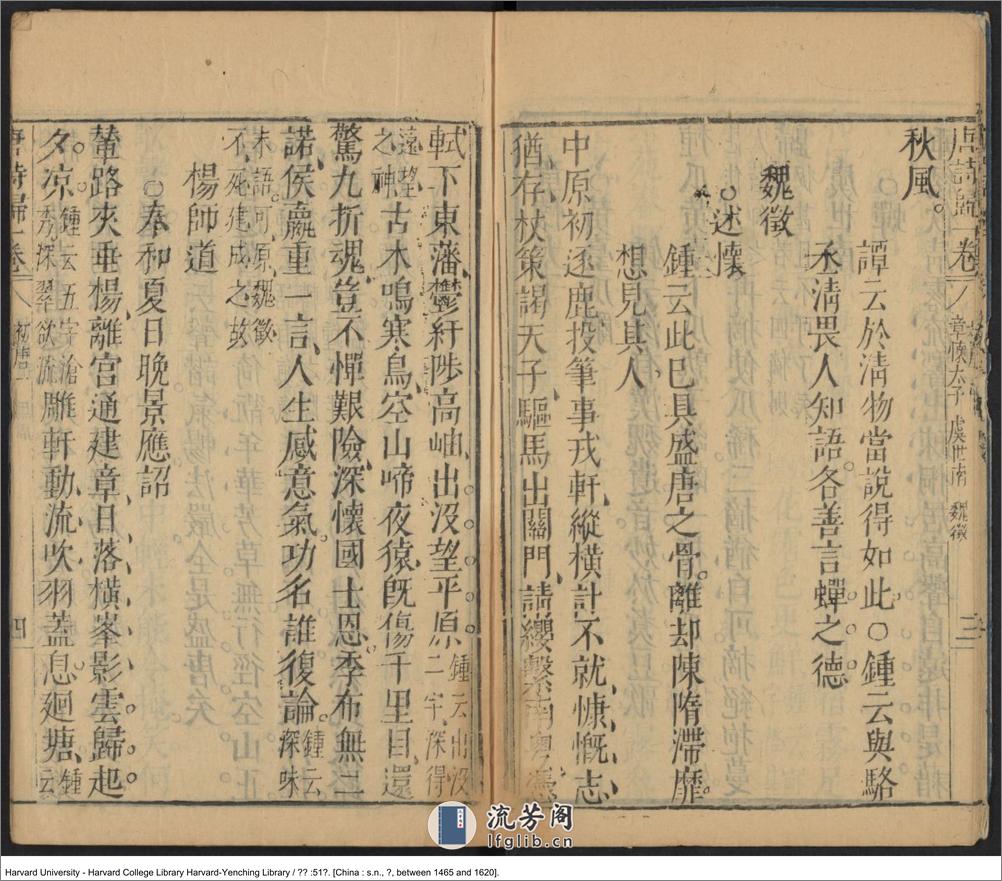 唐詩歸一卷 八 章懷太子 虞世南 魏徵 三
秋風
譚云於淸物當說得如此〇鍾云與駱
丞淸畏人知語各善言蟬之德
魏徵
〇述懷
鍾云此已具盛唐之骨離却陳隋滯靡
想見其人
中原初逐鹿投筆事戎軒縱橫計不就慷慨志
猶存杖策謁天子驅馬出關門請纓繫南粵憑
軾下東藩鬱紆陟高岫出沒望平原鍾云出沒二字深得
遠望之神古木鳴寒鳥空山啼夜猿旣傷千里目還
驚九折魂豈不憚艱險深懷國士恩季布無二
諾侯嬴重一言人生感意氣功名誰復論鍾云深味
末語可原魏徵不死建成之故
楊師道
〇奉和夏日晚景應詔
輦路夾垂楊離宮通建章日落橫峯影雲歸起
夕凉鍾云五字滄秀深翠欲流雕軒動流吹羽蓋息廻塘鍾云
唐詩歸一卷 八 初唐一 四
流芳阁
lfglib.cn
Harvard University - Harvard College Library Harvard-Yenching Library / ?? :51?. [China : s.n., ?, between 1465 and 1620].